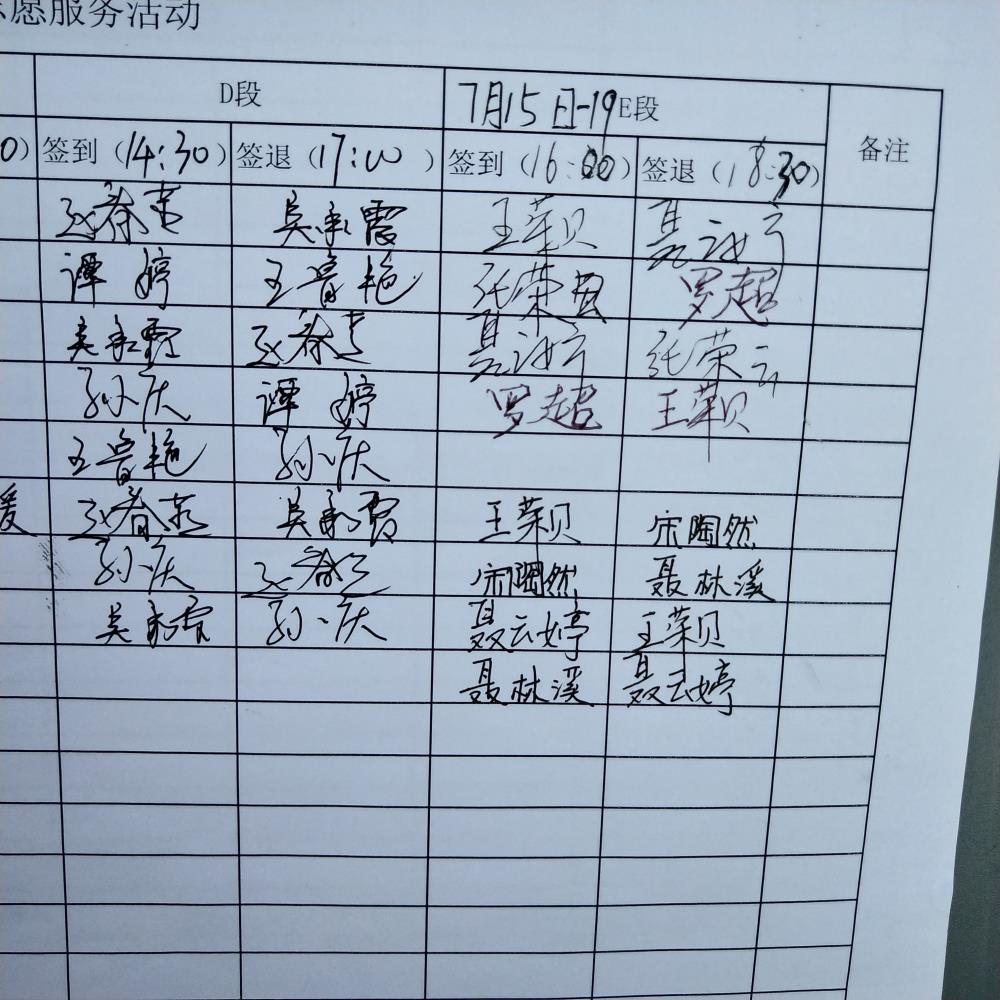 愿服务活动
D段 7月15日-19E段 备注
0) 签到（14:30） 签退（17:00） 签到（16:00） 签退（18:30）
赵春燕 吴永霞 王荣贝
谭婷 王晋艳 张荣 罗超
吴永霞 赵春燕 张荣云
孙庆 谭婷 罗超 王荣贝
王晋艳 孙庆
赵春燕 吴永霞 王荣贝 宋陶然
孙庆 赵春燕 宋陶然 聂林溪
吴永霞 孙庆 聂云婷 王荣贝
聂林溪 聂云婷